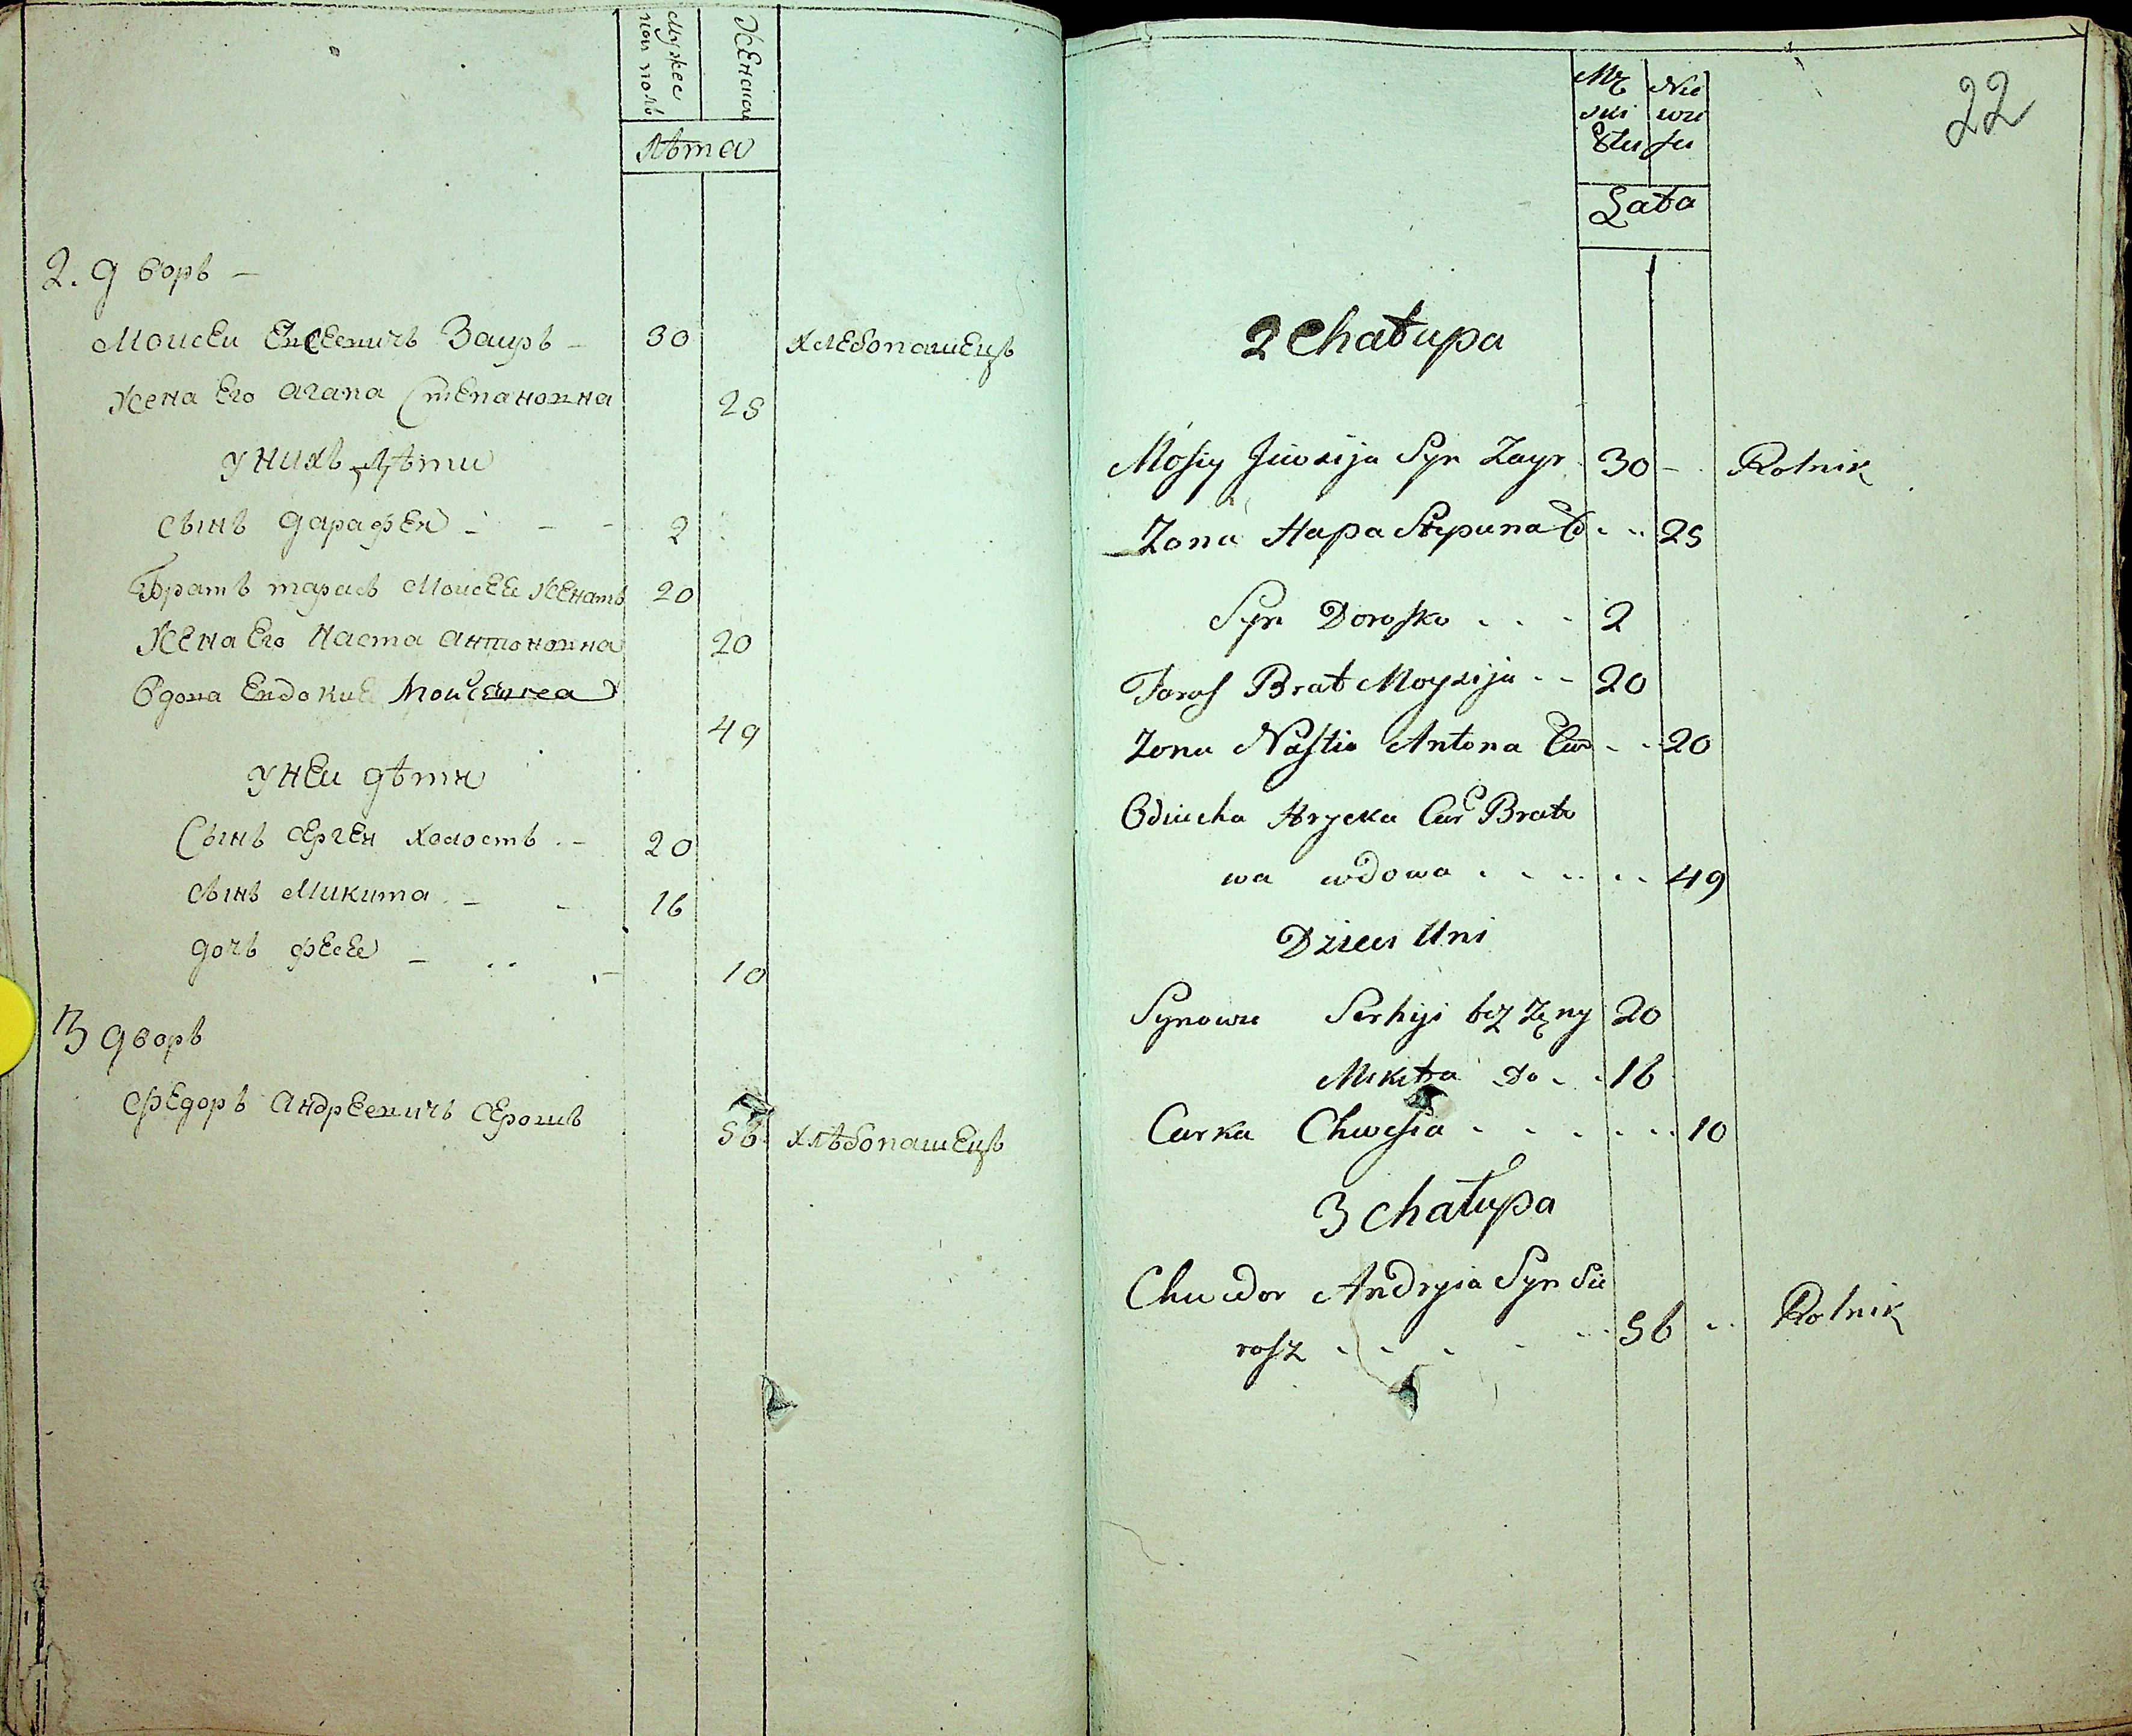 мужес Женска
кой полъ
лѣта
2. дворъ –
Моисеи Евсеевичъ Заиръ – 30 хлебопашецъ
Жена Его агапа Степановна 25
У нихъ дѣти
сынъ дарафеи – – – 2
Братъ тарасъ Моисеи Женатъ 20
Жена Его Наста антоновна 20
Вдова Евдокие 49
У неи дѣти
Сынъ сергеи холостъ . – 20
сынъ Микита – – 16
дочь фесе – . . – 10
3 дворъ
Федоръ андреевичъ серошъ 56 хлѣбопашецъ
22
Mę Nie
ski wie
Łata
2 Chałupa
Mosiy Jiwsija Syn Zayr 30 – Rolnik
Zona Hapa Stepana C . .. 25
Syn Dorosko . . . 2
Taras Brat Moyzija . . 20
Zona Nastia Antona Cur . . 20
Odiucha Hrycka Cur Brato
wa wdowa . . .. . . 49
Dzieci Uni
Synowie Serhiji bez Zeny 20
Mikita do . . 16
Curka Chwesia . . . . . . 10
3 chałupa
Chwedor Andryia Syn Sie
rosz . . . . . . 56 .. Rolnik